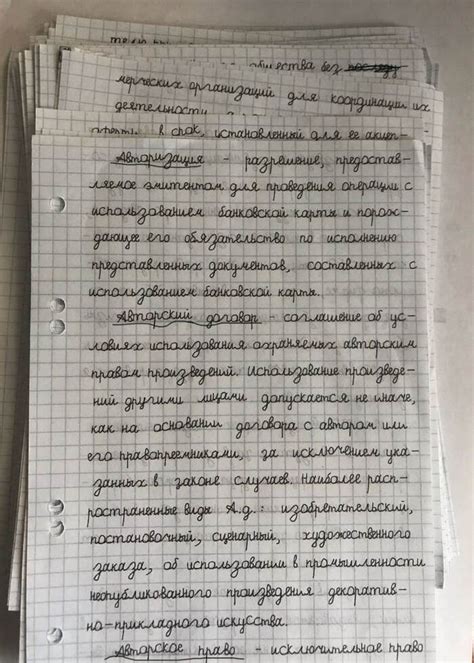 общества без
мерческих организаций для координации их
деятельности
в срок, установленный для ее акцеп-
Авторизация - разрешение, предостав-
ляемое эмитентом для проведения операции с
использованием банковской карты и порож-
дающее его обязательство по исполнению
представленных документов, составленных с
использованием банковской карты.
Авторский договор - соглашение об ус-
ловиях использования охраняемых авторским
правом произведений. Использование произведе-
ний другими лицами допускается не иначе,
как на основании договора с автором или
его правопреемниками, за исключением ука-
занных в законе случаев. Наиболее расп-
ространенные виды А.д.: изобретательский,
постановочный, сценарный, художественного
заказа, об использовании в промышленности
неопубликованного произведения декоратив-
но-прикладного искусства.
Авторское право - исключительное право